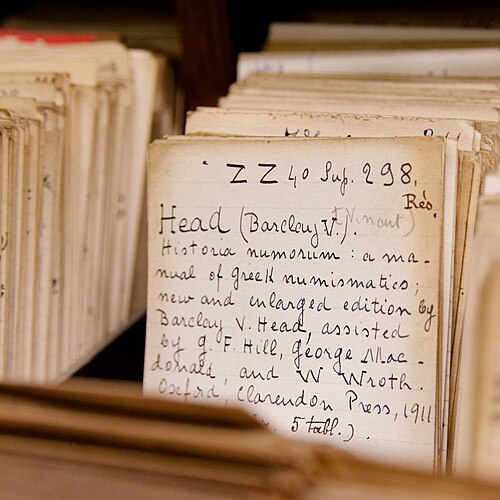 ZZ 40 Sup. 298.
Rés.
Head (Barclay V.).
Historia numorum : a ma-
nual of greek numismatics ;
new and enlarged edition by
Barclay V. Head, assisted
by G. F. Hill, George Mac-
donald, and W Wroth.
Oxford, Clarendon Press, 1911
5 tabl.).